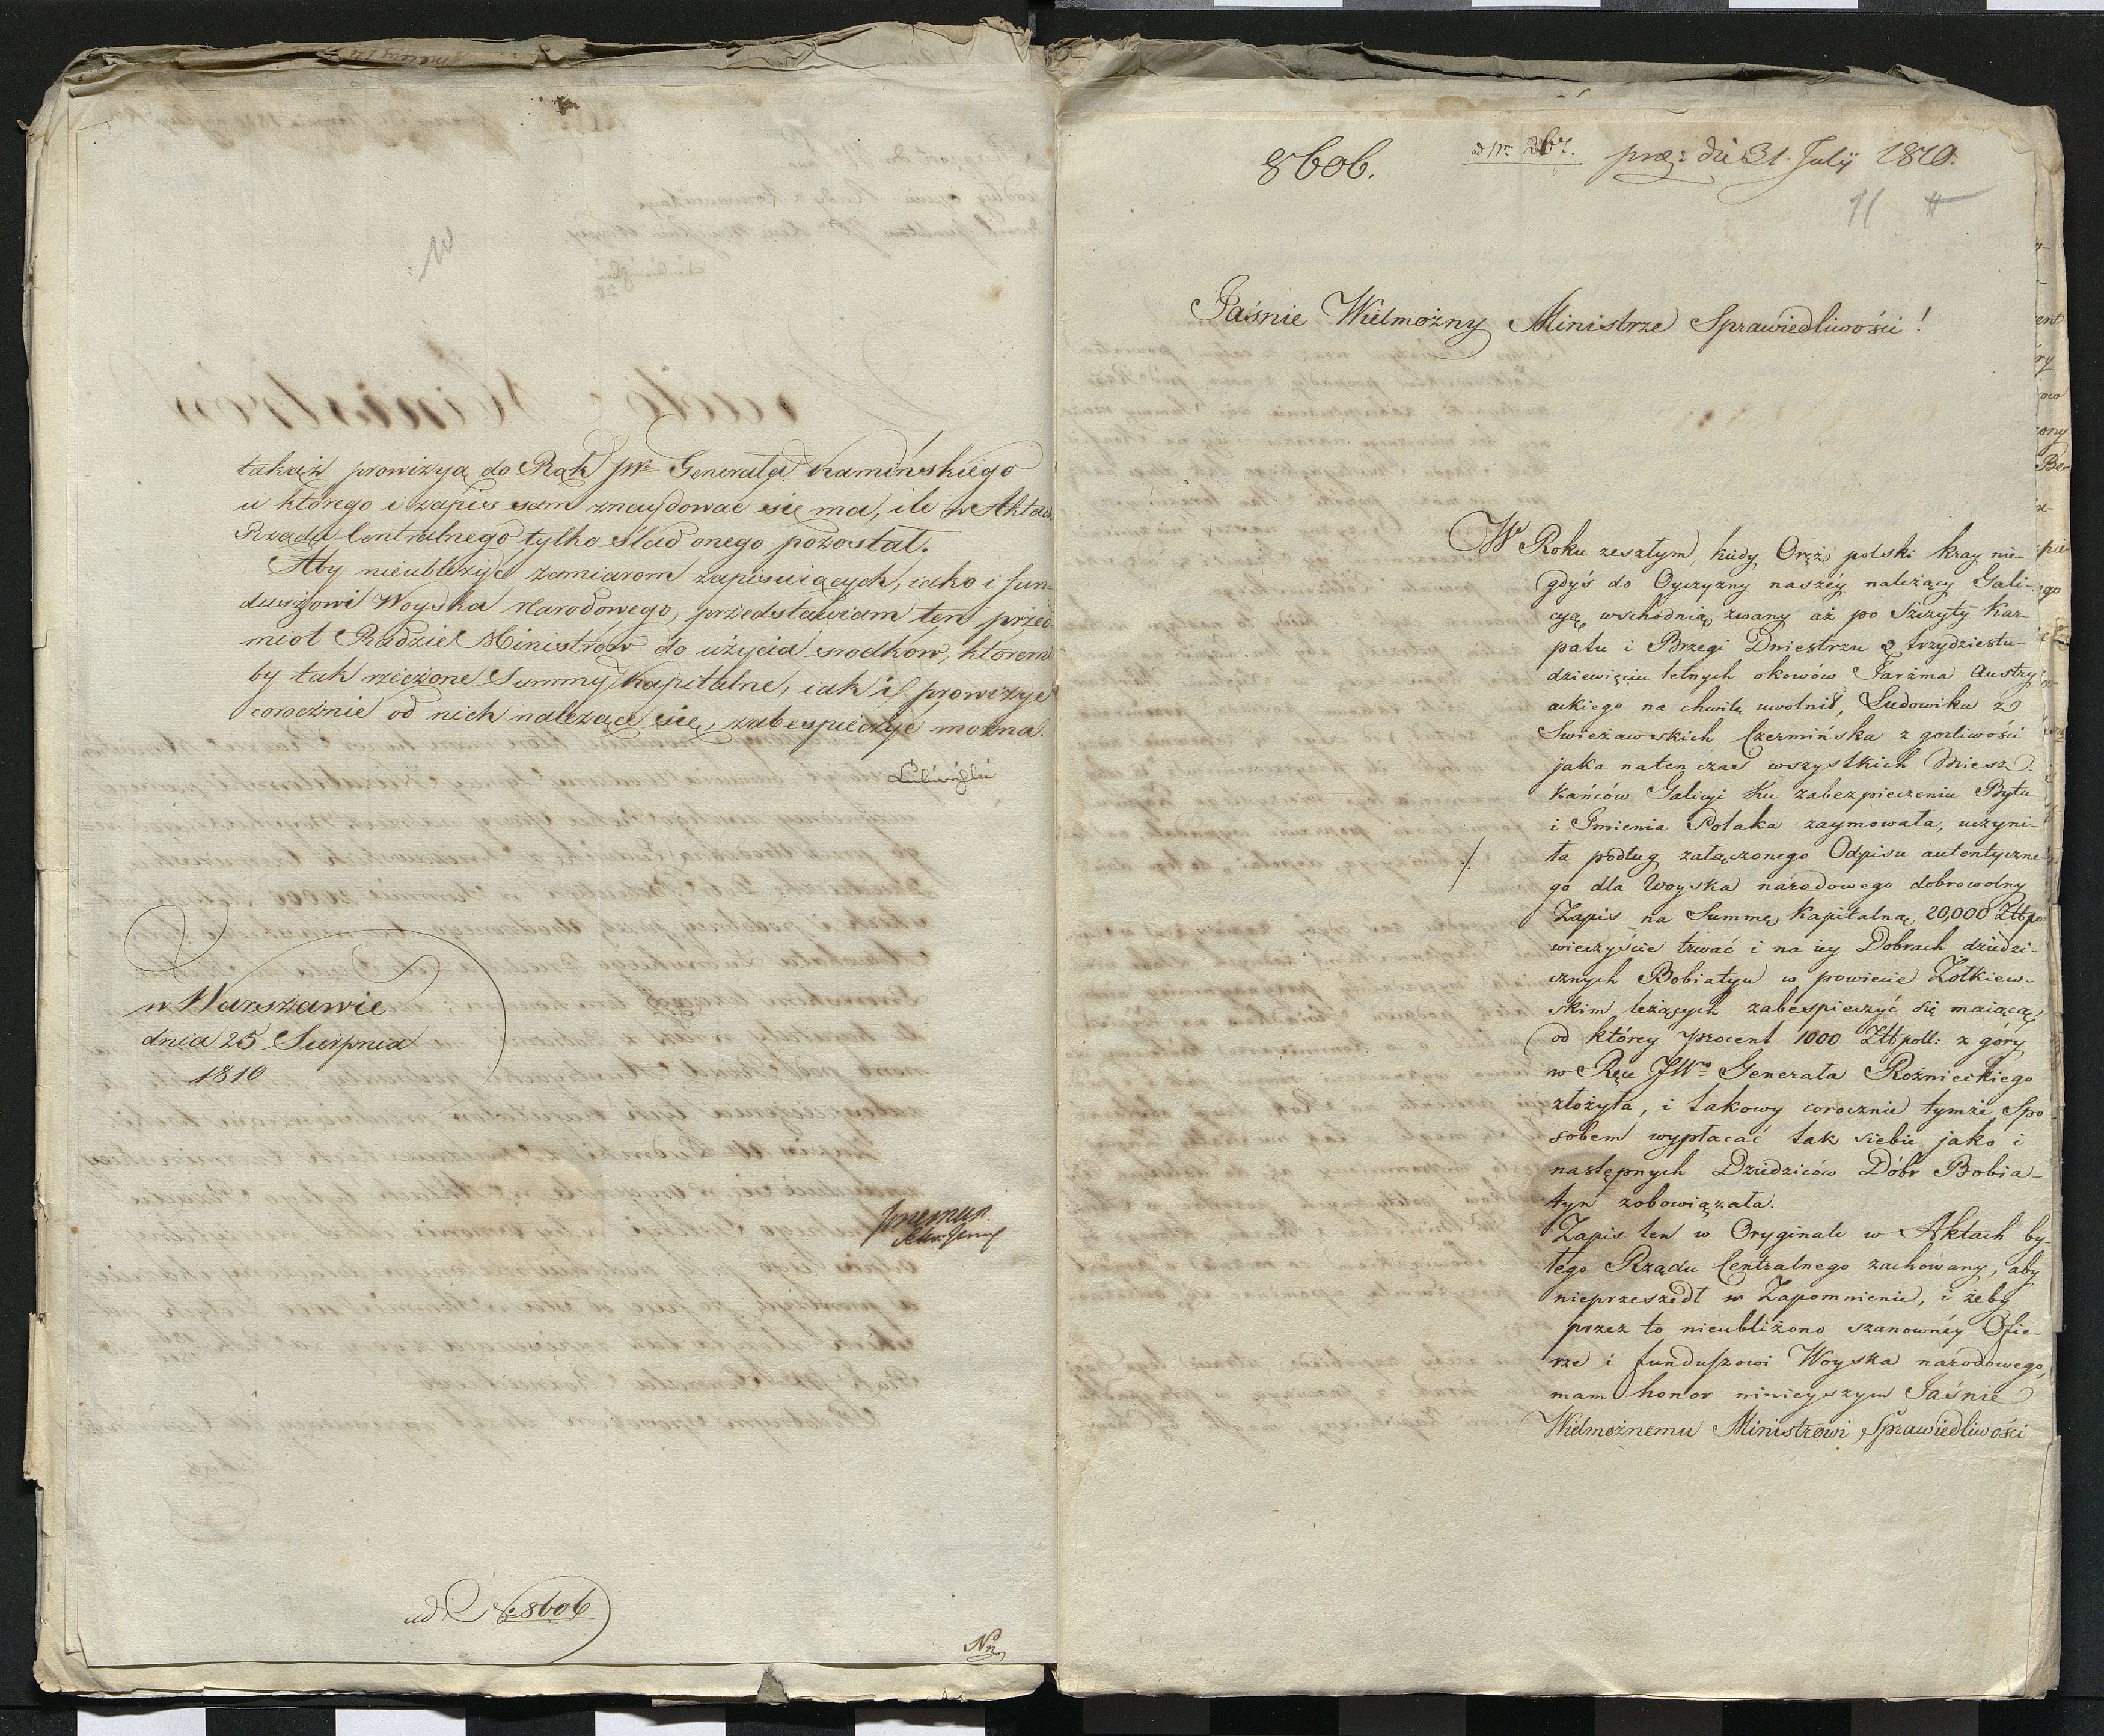 10
takąż prowizyą do Rąk JWo Generała Kamińskiego
u którego i zapis sam znaydować się ma, ile w Aktach
Rządu Centralnego tylko ślad onego pozostał.
Aby nieubliżyć zamiarom zapisuiących, iako i fun-
duszowi Woyska Narodowego, przedstawiam ten przed-
miot Radzie Ministrów do użycia srodków, któremi
by tak rzeczone Summy Kapitalne, iak i prowizye
corocznie od nich należące się, zabespieczyć można.
Łubieński
w Warszawie
dnia 25 Sierpnia
1810
ad No 8606
8606.
ad Nr 267. prae: die 31. Julij 1810.
11
Jaśnie Wielmożny Ministrze Sprawiedliwości!
W Roku zeszłym, kiedy Oręż polski kray nie-
gdyś do Oyczyzny naszéy należący Gali-
cyą wschodnią zwany aż po Szczyty Kar-
patu i Brzegi Dniestrzu z trzydziestu-
dziewięciu letnych okowów Jarzma Austry
ackiego na chwilę uwolnił, Ludowika z
Swieżawskich Czermińska z gorliwości
jaka natenczas wszystkich Miesz-
kańców Galicyi ku zabezpieczeniu Bytu
i Imienia Polaka zaymowała, uczyni-
ła podług załączonego Odpisu autentyczne-
go dla Woyska narodowego dobrowolny
Zapis na Summę Kapitalną 20,000 Złtpo:
wieczyście trwać i na iey Dobrach dziedzi-
cznych Bobiatyn w powiecie Zołkiew-
skim leżących zabespieczyć się maiącą,
od którey procent 1000 Złtpoll: z góry
w Ręce JWo Generała Rożnieckiego
złożyła, i takowy corocznie tymże Spo-
sobem wypłacać tak siebie jako i
następnych Dziedziców Dóbr Bobia-
tyn zobowiązała.
Zapis ten w Oryginale w Aktach by-
łego Rządu Centralnego zachowany, aby
nieprzeszedł w Zapomnienie, i żeby
przez to nieubliżono szanownéy Ofie-
rze i funduszowi Woyska narodowego,
mam honor ninieyszym Jaśnie
Wielmożnemu Ministrowi Sprawiedliwości